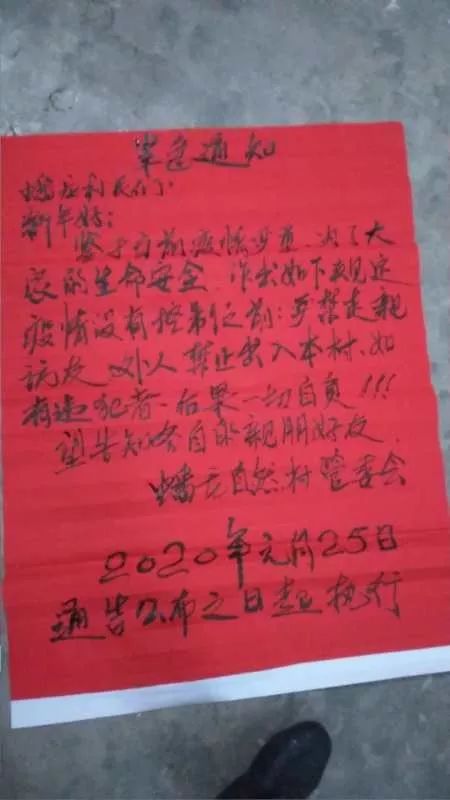 紧急通知
村民们:
新年好:
鉴于当前疫情严重,为了大
家的生命安全,作出如下规定
疫情没有控制住前:严禁走亲
访友,外人禁止出入本村,如
有违犯者、后果一切自负!!!
望告知各自的亲朋好友.
自然村管委会
2020年元月25日
通告公布之日起执行